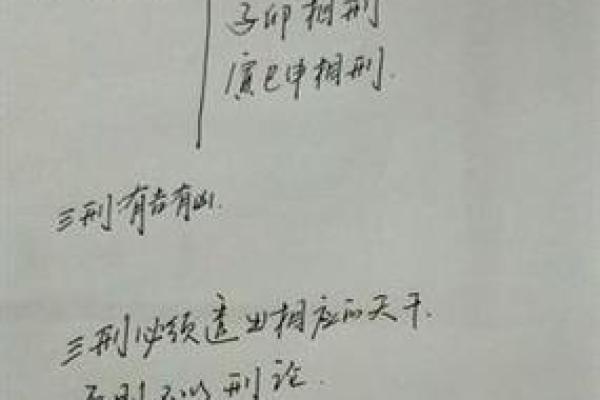 子卯相刑
寅巳申相刑.
三刑有吉有凶.
三刑必须透出相应的天干.
否则不以刑论.